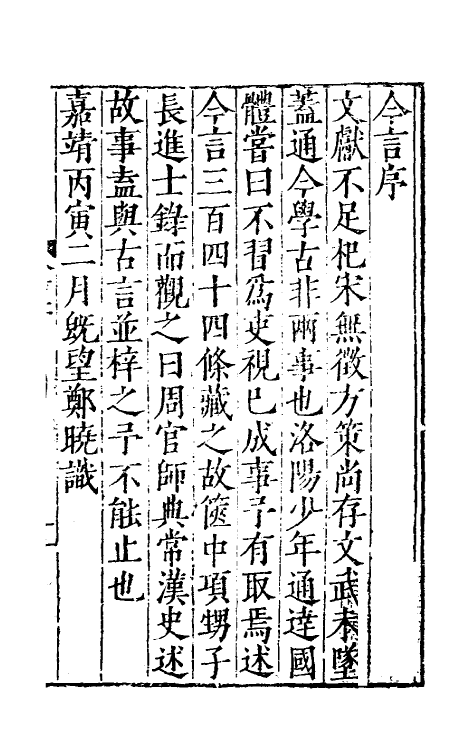 今言序
文獻不足杞宋無徵方策尚存文武未墜
蓋通今學古非兩事也洛陽少年通達國
體嘗曰不習爲吏視已成事予有取焉述
今言三百四十四條藏之故篋中項甥子
長進士錄而觀之曰周官師典常漢史述
故事盍與古言並梓之予不能止也
嘉靖丙寅二月旣望鄭曉識